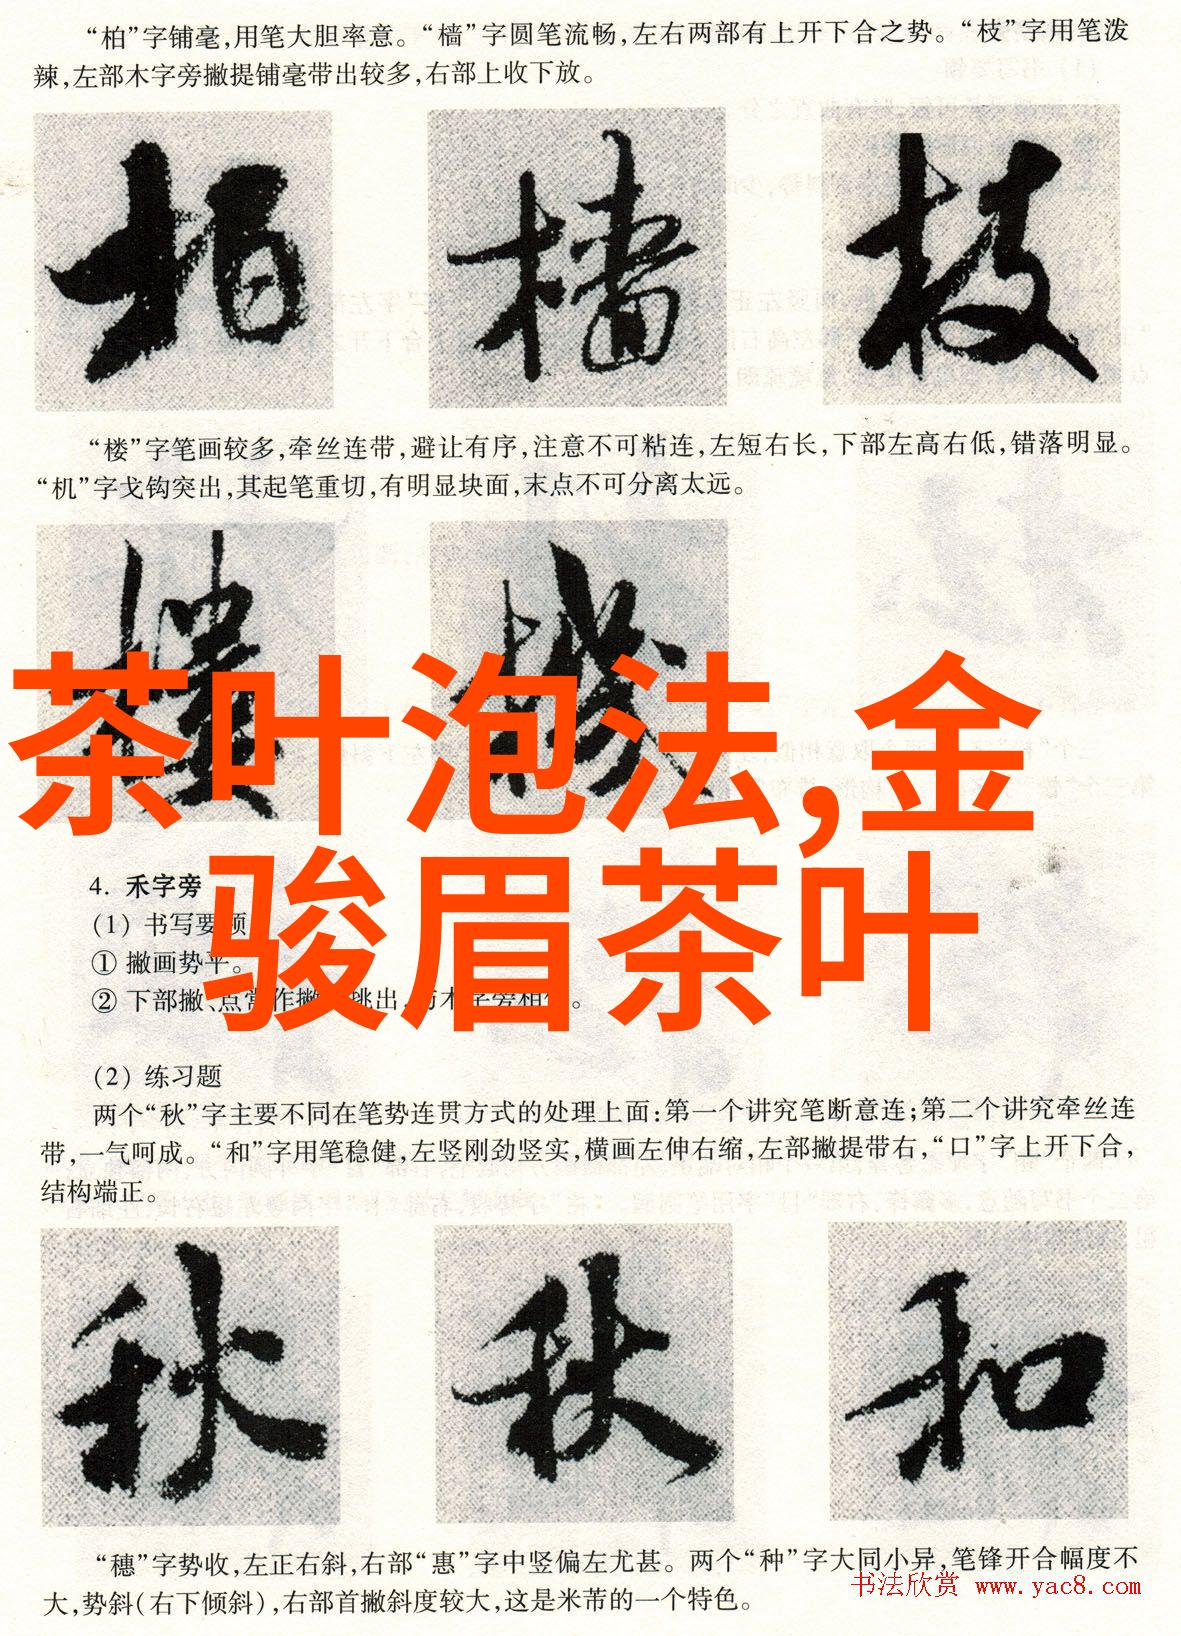 “柏”字铺毫,用笔大胆率意。“樯”字圆笔流畅,左右两部有上开下合之势。“枝”字用笔泼
辣,左部木字旁撇提铺毫带出较多,右部上收下放。
柏 檣 枝
“楼”字笔画较多,牵丝连带,避让有序,注意不可粘连,左短右长,下部左高右低,错落明显。
“机”字戈钩突出,其起笔重切,有明显块面,末点不可分离太远。
樓 機
茶叶泡法,金
骏眉茶叶
4. 禾字旁
(1) 书写要领
① 撇画势平。
② 下部撇、点常作撇 挑出,与木字旁相似。
(2) 练习题
两个“秋”字主要不同在笔势连贯方式的处理上面:第一个讲究笔断意连;第二个讲究牵丝连
带,一气呵成。“和”字用笔稳健,左竖刚劲竖实,横画左伸右缩,左部撇提带右,“口”字上开下合,
结构端正。
秋 秋 和
“穗”字势收,左正右斜,右部“惠”字中竖偏左尤甚。两个“种”字大同小异,笔锋开合幅度不
大,势斜(右下倾斜),右部首撇斜度较大,这是米芾的一个特色。
书法欣赏 www.yac8.com